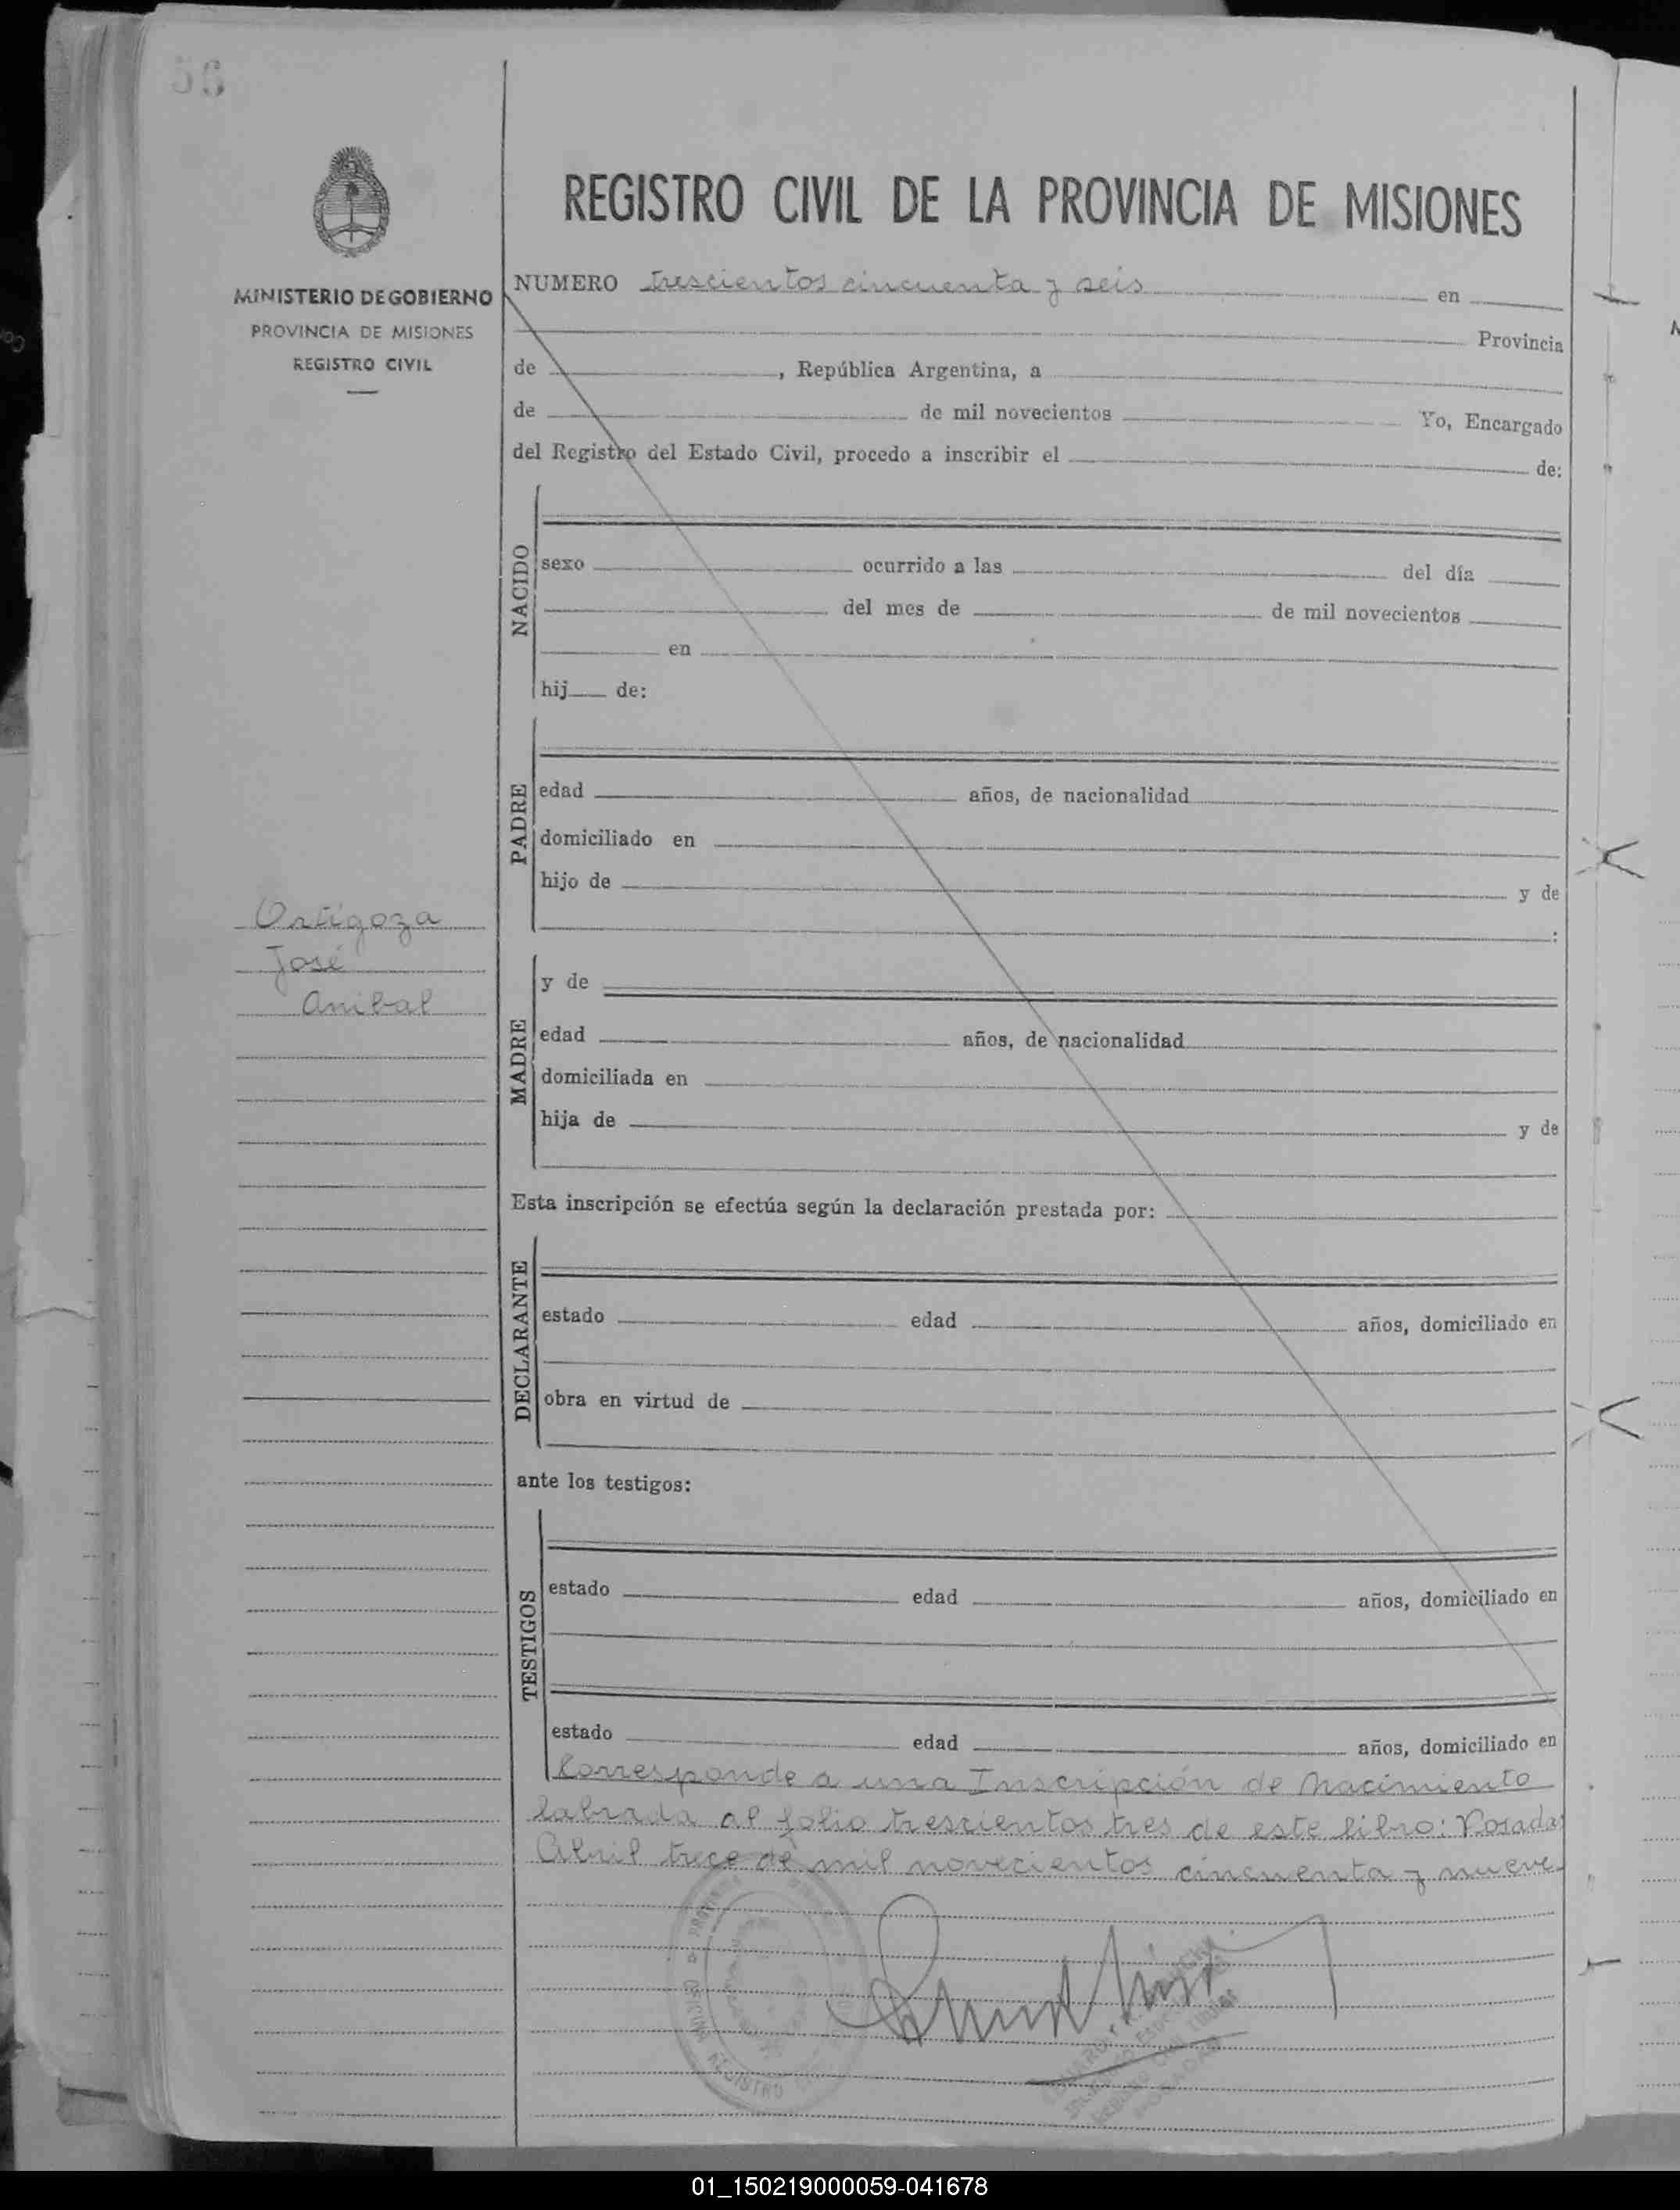 56
REGISTRO CIVIL DE LA PROVINCIA DE MISIONES
MINISTERIO DE GOBIERNO
PROVINCIA DE MISIONES
REGISTRO CIVIL
NUMERO trescientos cincuenta y seis en
Provincia
de , República Argentina, a
de de mil novecientos Yo, Encargado
del Registro del Estado Civil, procedo a inscribir el de:
NACIDO
sexo ocurrido a las del día
del mes de de mil novecientos
en
hij de:
PADRE
edad años, de nacionalidad
domiciliado en
hijo de y de
:
Ortigoza
José
Anibal
MADRE
y de
edad años, de nacionalidad
domiciliada en
hija de y de
Esta inscripción se efectúa según la declaración prestada por:
DECLARANTE
estado edad años, domiciliado en
obra en virtud de
ante los testigos:
TESTIGOS
estado edad años, domiciliado en
estado edad años, domiciliado en
Corresponde a una Inscripción de Nacimiento
labrada al folio trescientos tres de este libro: Posadas
Abril trece de mil novecientos cincuenta y nueve
01_150219000059-041678